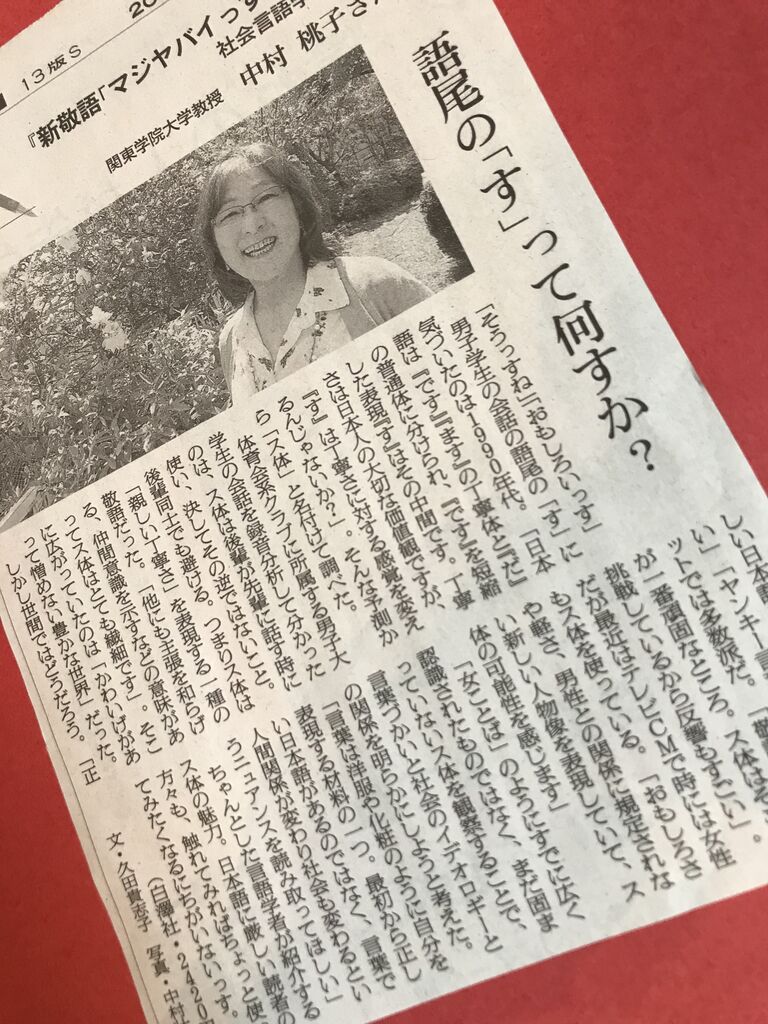 13版S
20
『新敬語「マジヤバイっす
社会言語学
中村 桃子さん
関東学院大学教授
語尾の「す」って何すか？
「そうっすね」「おもしろいっす」
男子学生の会話の語尾の「す」に
気づいたのは1990年代。「日本
語は『です』『ます』の丁寧体と『だ』
の普通体に分けられ、『です』を短縮
した表現『す』はその中間です。丁寧
さは日本人の大切な価値観ですが、
『す』は丁寧さに対する感覚を変え
るんじゃないか？」。そんな予測か
ら「ス体」と名付けて調べた。
体育会系クラブに所属する男子大
学生の会話を録音分析して分かった
のは、ス体は後輩が先輩に話す時に
使い、決してその逆ではないこと。
後輩同士でも避ける。つまりス体は
「親しい丁寧さ」を表現する一種の
敬語だった。「他にも主張を和らげ
る、仲間意識を示すなどの意味があ
ってス体はとても繊細です」。そこ
に広がっていたのは「かわいげがあ
って憎めない豊かな世界」だった。
しかし世間ではどうだろう。「正
しい日本語
い」「ヤンキー
ットでは多数派だ。「敬
が一番頑固なところ。ス体はそ
挑戦しているから反響もすごい」。
だが最近はテレビCMで時には女性
もス体を使っている。「おもしろさ
や軽さ、男性との関係に規定されな
い新しい人物像を表現していて、ス
体の可能性を感じます」
「女ことば」のようにすでに広く
認識されたものではなく、まだ固ま
っていないス体を観察することで、
言葉づかいと社会のイデオロギーと
の関係を明らかにしようと考えた。
「言葉は洋服や化粧のように自分を
表現する材料の一つ。最初から正し
い日本語があるのではなく、言葉で
人間関係が変わり社会も変わるとい
うニュアンスを読み取ってほしい」
ちゃんとした言語学者が紹介する
ス体の魅力。日本語に厳しい読者の
方々も、触れてみればちょっと使っ
てみたくなるにちがいないっす。
（白澤社・2420円
文・久田貴志子 写真・中村